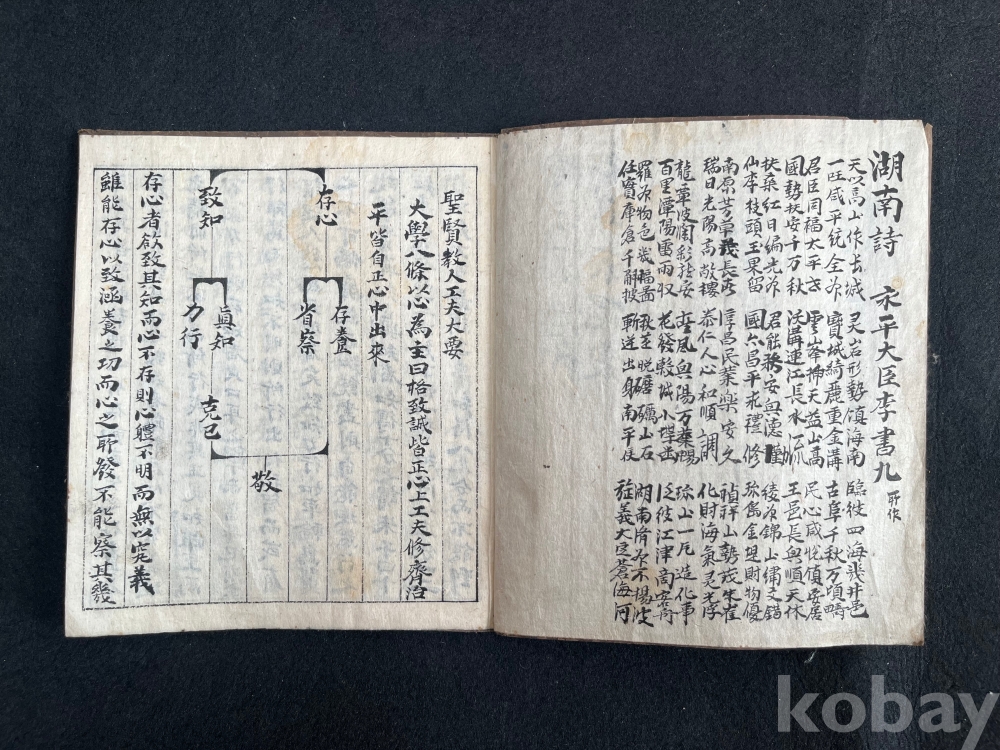 湖南詩 永平大臣李書九 所作
天以高山作長城 灵岩形勢鎮海南 臨彼四海幾井邑
一旺咸平統全州 寶城綺麗重金溝 古阜千秋万頃疇
君臣同福太平 雲峯揷天益山高 民心咸悅安居
國勢扶安千万秋 沃溝運江長水流 王邑長興順天休
扶桑紅日編光州 君能務安興德 綾州錦山繡文錯
仙李枝頭玉果留 國亦昌平禮修 珎島金堤財物優
南原芳草茂長 淳昌民業樂安久 禎祥山勢茂朱
瑞日光陽高敞樓 人心和順調 化財海氣灵光浮
龍章 風興陽万葉賜 珎山一片造化事
百里潭陽雷雨收 花發穀城小 泛彼江津商客
羅州物色幾 秋至晚磨礪山石 湖南濟州不揚波
任實庫倉千斛 斬送出南平使 旌義大定蒼海
聖賢教人工夫大要
大學八條以心為主曰格致誠皆正心上工夫修齊治
平皆自正心中出來
存心
致知
存養
省察
眞知
力行
克己
敬
存心者欲致其知而心不存則心軆不明而無以究義
雖能存心以致涵養之功而心之所發不能察其幾